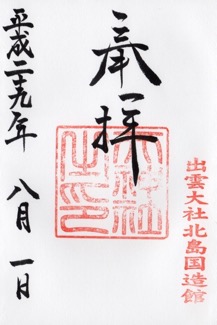 出雲大社 北島国造館
奉拝
平成二十九年 八月 一日